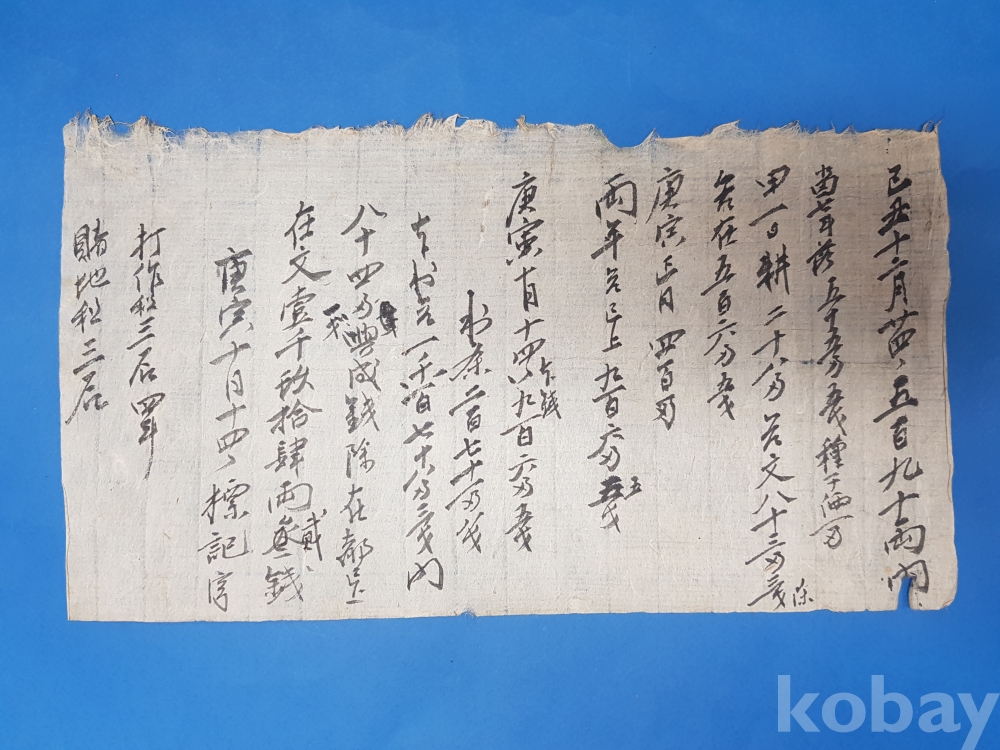 己丑十二月卄四、五百九十兩內
當年落 五十五兩五戔 種子価
甲一日耕 二十八兩 合文八十三兩五戔 除
合在五百六兩五戔
庚寅正月 四百兩
兩年合已上 九百六兩五戔 五
庚寅十月十四、九百六兩五戔
本錢
利条二百七十一兩
本利合一千一百七十八兩三戔內
八十四兩 興成錢除在
在文壹千玖拾肆兩參錢
貳
庚寅十月十四、標記
打作租三石 四年
賭地租三石
kobay